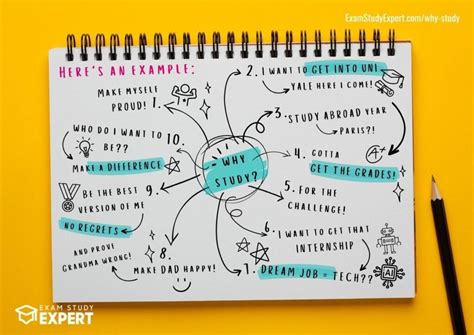 ExamStudyExpert.com/why-study
HERE'S AN EXAMPLE:
WHY
STUDY?
MAKE MYSELF
PROUD! 1.
2. I WANT TO GET INTO UNI.
YALE HERE I COME!
3. STUDY ABROAD YEAR
PARIS?!
4. GOTTA
GET THE GRADES!
A+
5. FOR THE
CHALLENGE!
6. I WANT TO GET THAT
INTERNSHIP
7. DREAM JOB = TECH??
AI
8.
MAKE DAD HAPPY!
BE THE BEST 9.
VERSION OF ME
NO REGRETS
AND PROVE
GRANDMA WRONG!
WHO DO I WANT TO 10.
BE??
MAKE A DIFFERENCE
EXAM STUDY
EXPERT